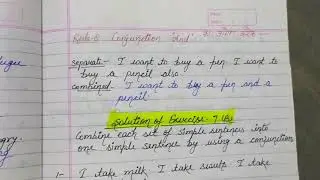 Rule-8 Conjunction 'And'
Separate - I want to buy a pen I want to
buy a pencil also.
combined - I want to buy a pen and a
pencil
Solution of Exercise 7.
Combine each set of simple sentences into
one simple sentence by using a conjunction
1- I take milk. I take I take